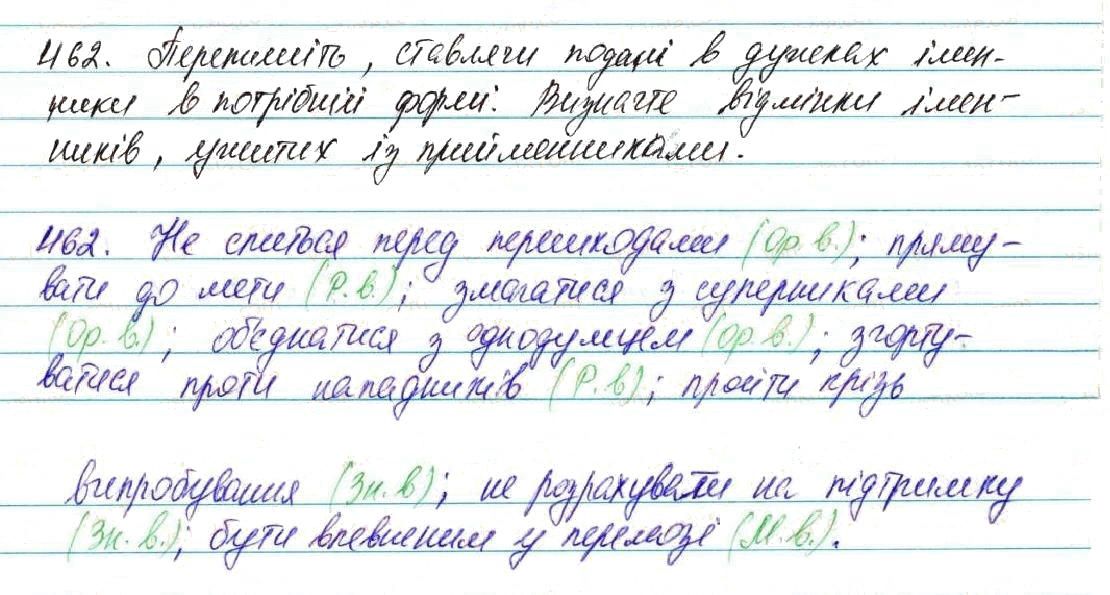 462. Перепишіть, ставлячи подані в дужках імен-
ники в потрібній формі. Визначте відмінки імен-
ників, ужитих із прийменниками.
462. Не спиться перед перешкодами (Ор.в.); пряму-
вати до мети (Р.в.); змагатися з суперниками
(Ор.в.); обєднатися з однодумцем (ор.в.); згорту-
ватися проти нападників (Р.в); пройти крізь
випробування (Зн.в); не розрахувати на підтримку
(Зн.в.); бути впевненим у перемозі (М.в.).